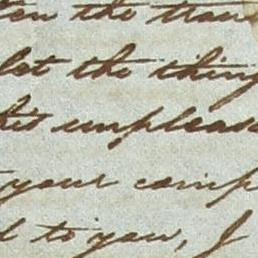 the tran
let the thing
his unpleas
your comp
to you, I